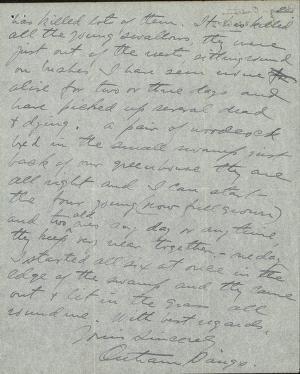 has killed lots of them. It has killed
all the young swallows, they were
just out of the nests sitting round
on bushes. I have seen none
alive for two or three days and
have picked up several dead
& dying. a pair of woodcock
bred in the small swamp just
back of our greenhouse they are
all right and I can start
the four young (now full grown)
and two old ones any day or any time
they keep very near together, one day
I started all six at once in the
edge of the swamp and they came
out & lit in the grass all
round me. With best regards,
Yours Sincerely
Outram Bangs.